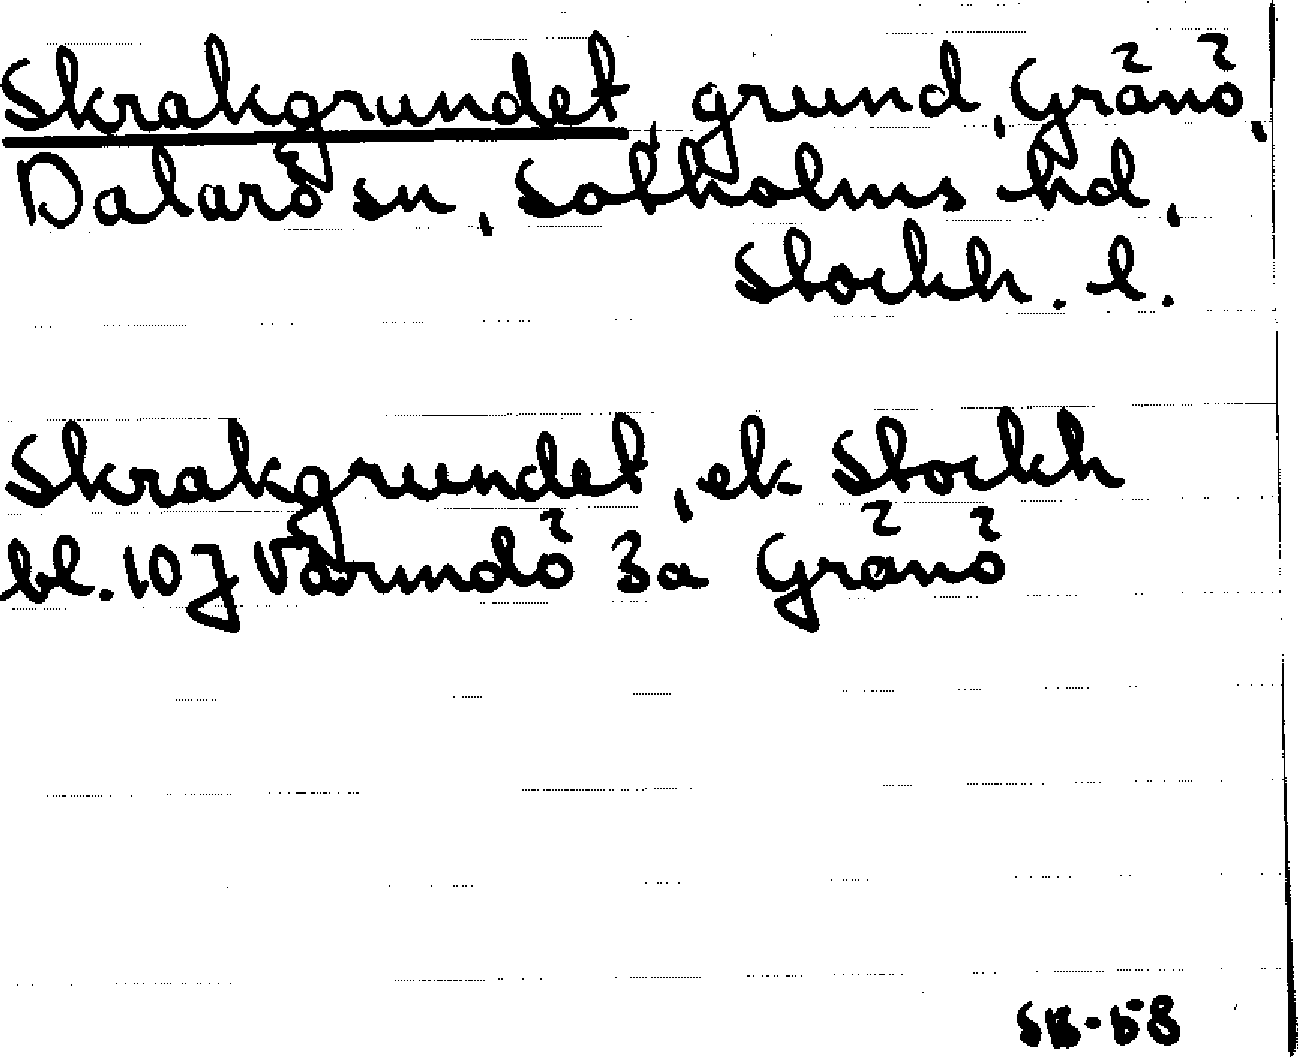 Skrakgrundet, grund, Gränö,
Dalarö sn, Sotholms hd,
Stockh. l.
Skrakgrundet, ek Stockh
bl. 10 J Värmdö 3a Gränö
SB-58